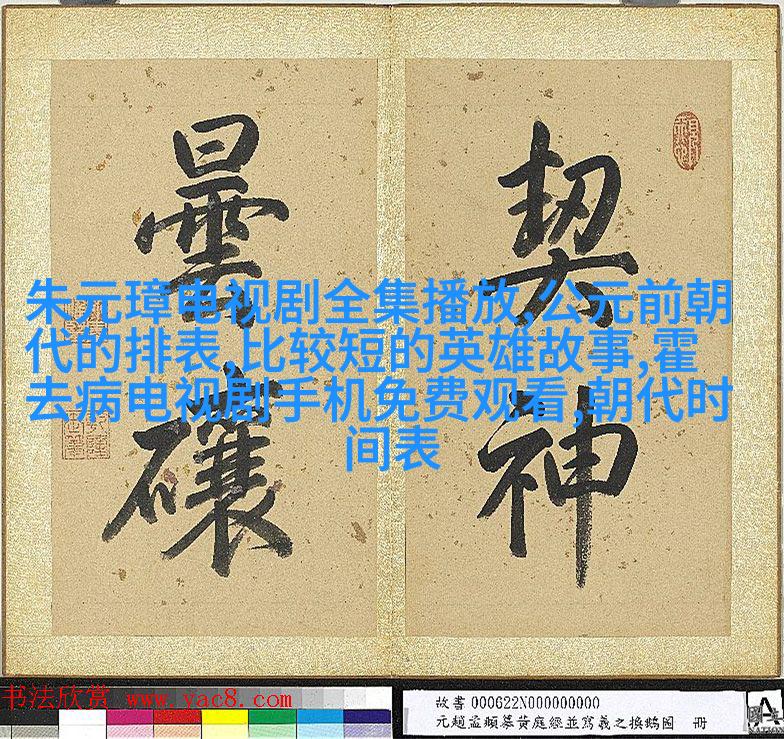 契神
曇
朱元璋电视剧全集播放,公元前朝
代的排表,比较短的英雄故事,霍
去病电视剧手机免费观看,朝代时
间表
书法欣赏 www.yac8.com
故書000622N000000000
元趙孟頫摹黃庭經並寫羲之換鵝圖 冊